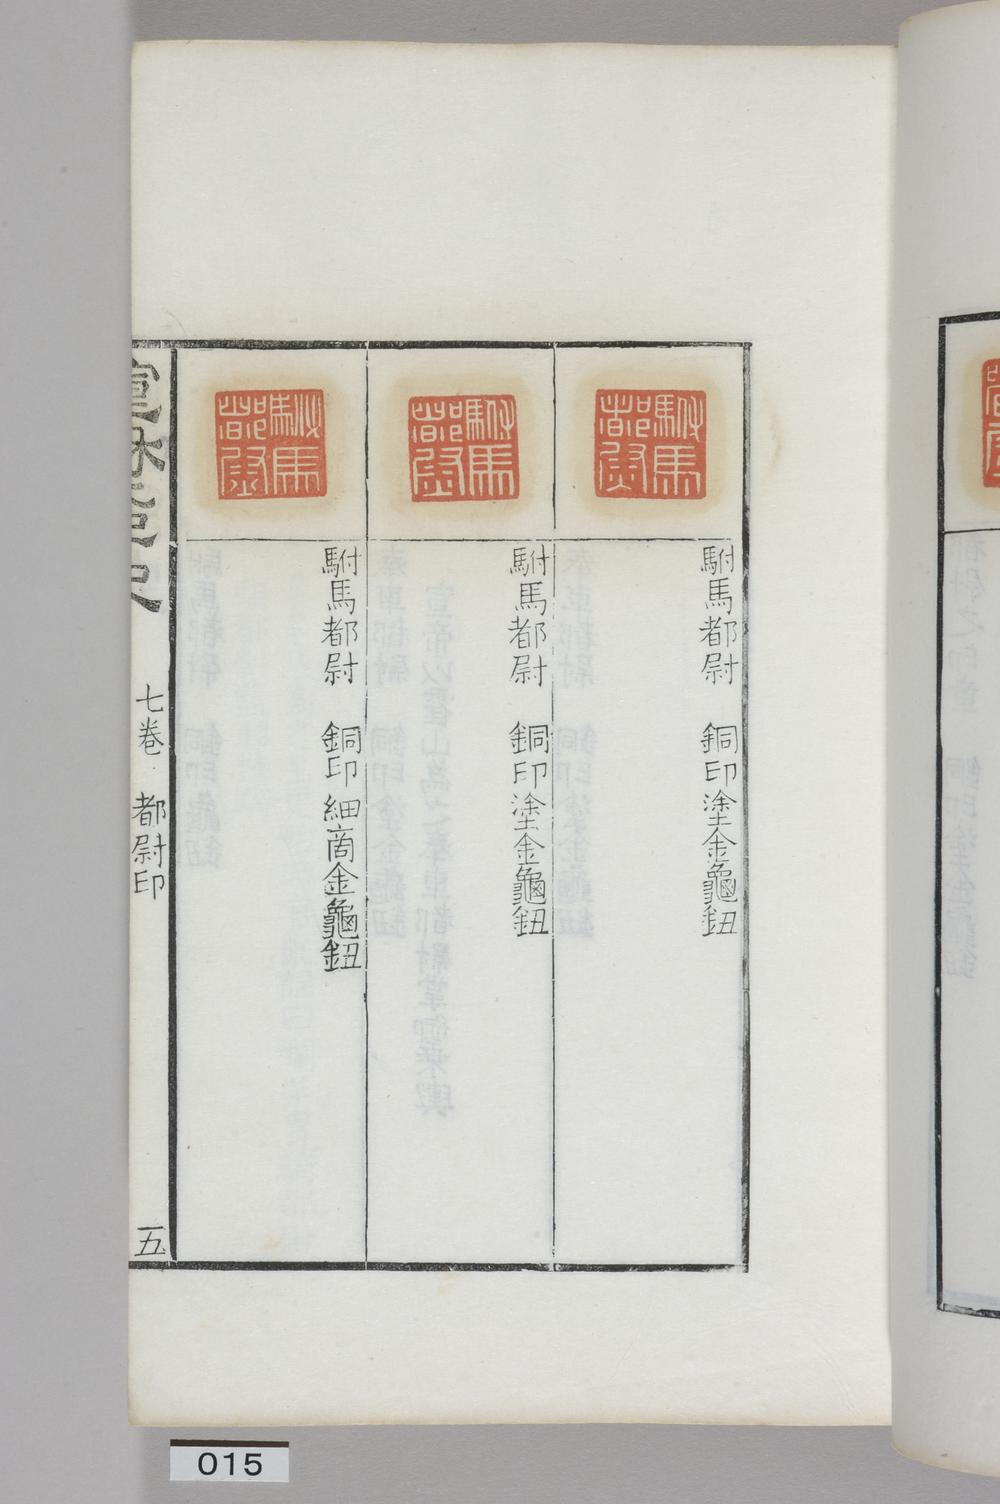 駙馬都尉
駙馬都尉　銅印塗金龜鈕
駙馬都尉
駙馬都尉　銅印塗金龜鈕
駙馬都尉
駙馬都尉　銅印細啇金龜鈕
宣和
史
七卷
都尉印
五
015